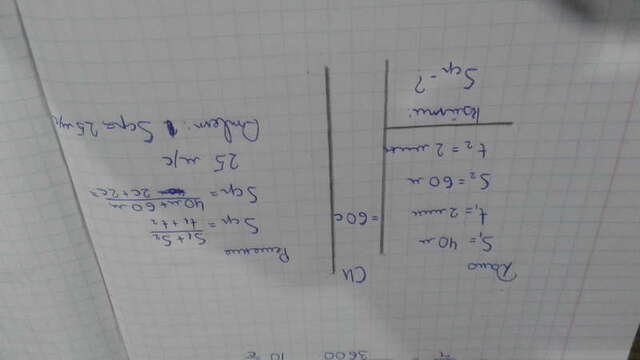 3600 10 с
Дано
S₁ = 40 м
t₁ = 2 мин
S₂ = 60 м
t₂ = 2 мин
Найти:
Sср - ?
СИ
= 60 с
Решение
Sср = S₁ + S₂ / t₁ + t₂
Sср = 40 м + 60 м / 2с + 2с =
25 м/с
Ответ: Sср = 25 м/с